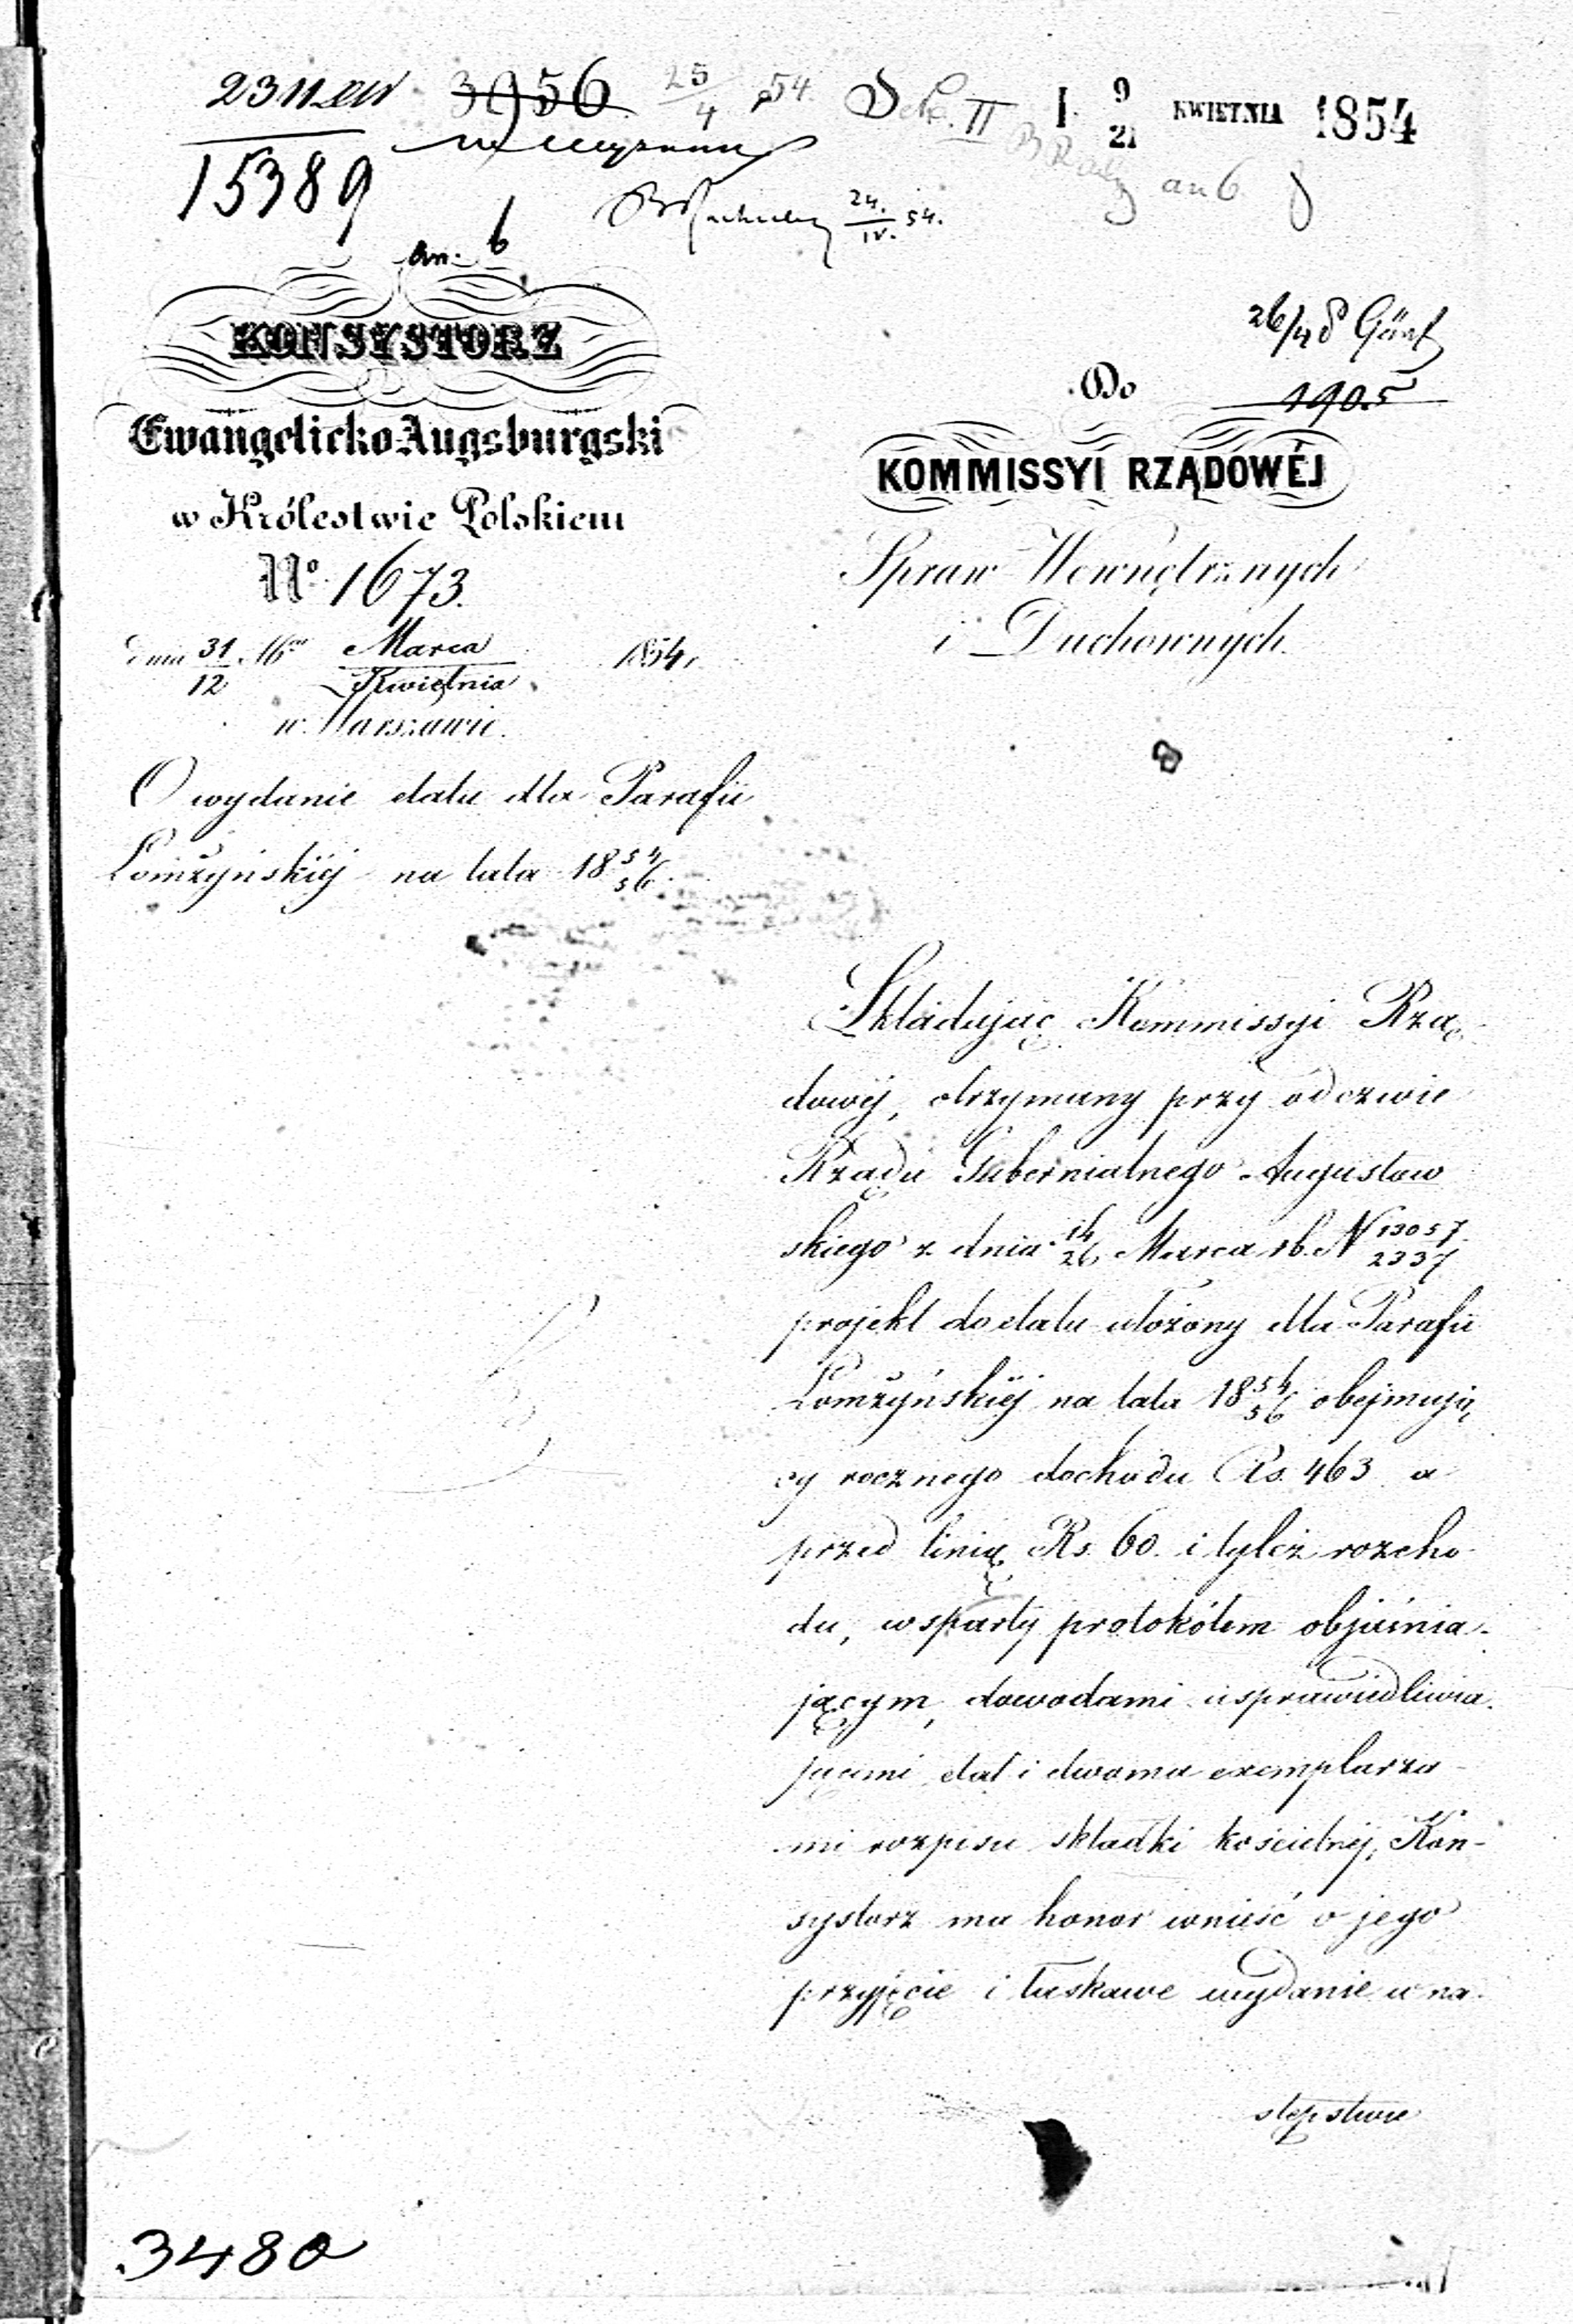 3956 25/4 54 Dek. II I. 9/21 KWIETNIA 1854
15389
24./IV. 54. an 6
an. 6
KONSYSTORZ
Ewangelicko Augsburgski
w Królestwie Polskiem
No. 1673.
dnia 31/12 Marca/Kwietnia 1854 r.
w Warszawie.
O wydanie etatu dla Parafii
Łomżyńskiéj na lata 18 54/56.
26/4
Do
1905
KOMMISSYI RZĄDOWÉJ
Spraw Wewnętrznych
i Duchownych.
Składając Kommissyi Rzą
dowéj, otrzymany przy odezwie
Rządu Gubernialnego Augustow
skiego z dnia 14/26 Marca rb. N 13057/2337
projekt do etatu ułożony dla Parafii
Łomżyńskiéj na lata 18 54/56 obejmują
cy rocznego dochodu Rs. 463 a
przed linią Rs. 60. i tyleż rozcho
du, wsparty protokółem objaśnia-
jącym, dowodami usprawiedliwia-
jącemi etat i dwoma exemplarza-
mi rozpisu składki kościelnéj, Kon-
systorz ma honor wnieść o jego
przyjęcie i łaskawe wydanie w na-
stępstwie
3480